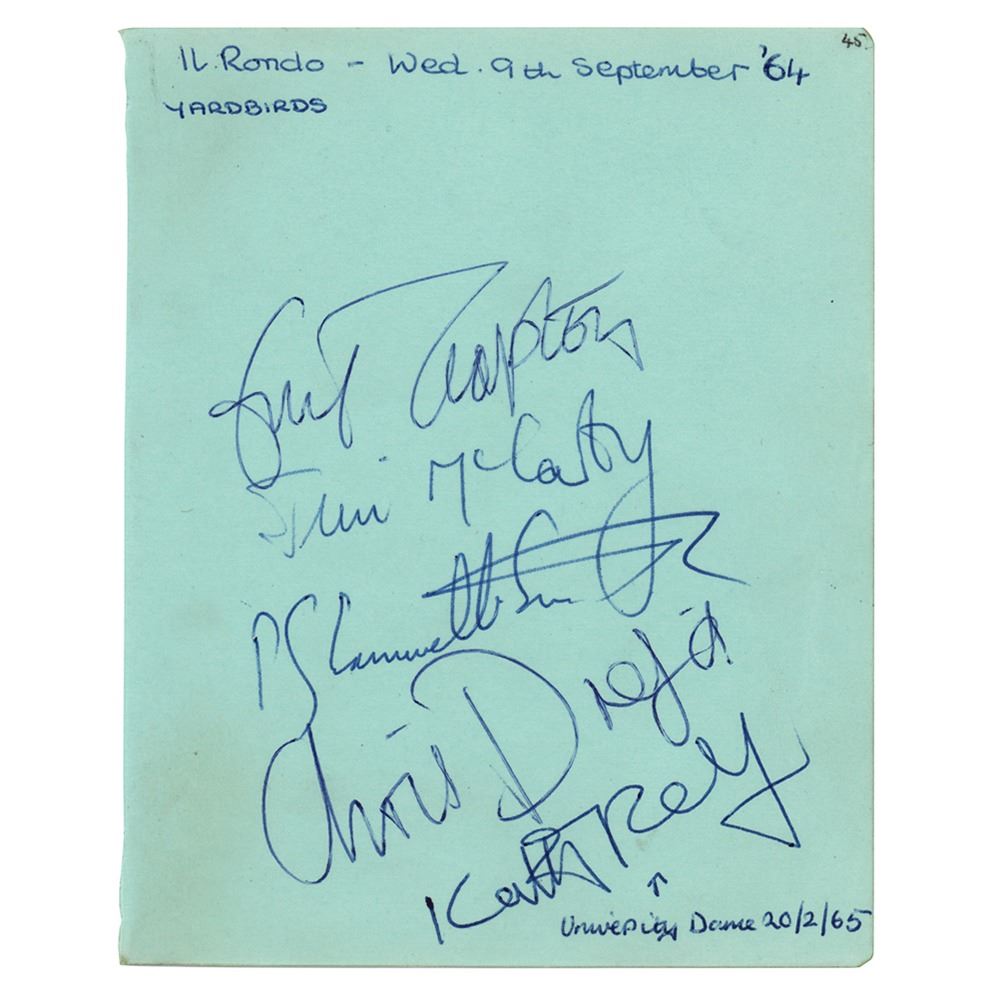 45
IL Rondo - Wed. 9th September '64
YARDBIRDS
Eric Clapton
Jim McCarty
P S Samwell Smith
Chris Dreja
Keith Relf
↑
University Dance 20/2/65